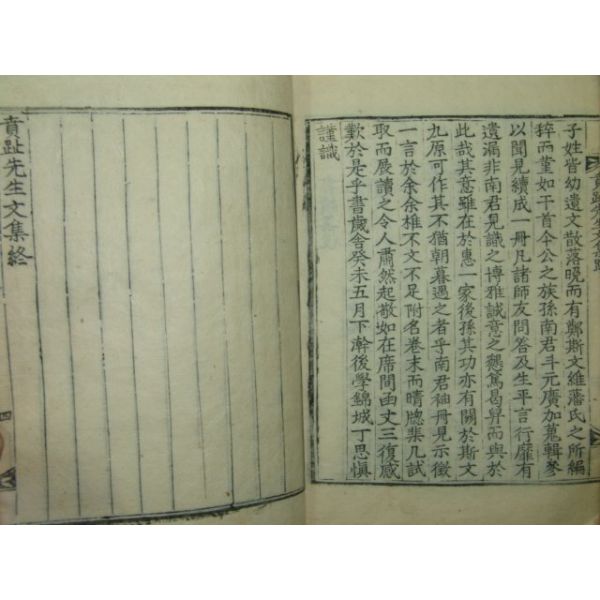 子姓皆幼遺文散落晩而有鄭斯文維藩氏之所編
猝而堇如干首今公之族孫南君斗元廣加蒐輯參
以聞見續成一冊凡諸師友問答及生平言行靡有
遺漏非南君見識之博雅誠意之懇篤曷畀而與於
此哉其意雖在於惠一家後孫其功亦有關於斯文
九原可作其不猶朝暮遇之者乎南君袖冊見示徵
一言於余余椎不文不足附名卷末而晴牕棐几試
取而展讀之令人肅然起敬如在席間函丈三復感
歎於是乎書歲舍癸未五月下澣後學錦城丁思愼
謹識
賁趾先生文集終
四